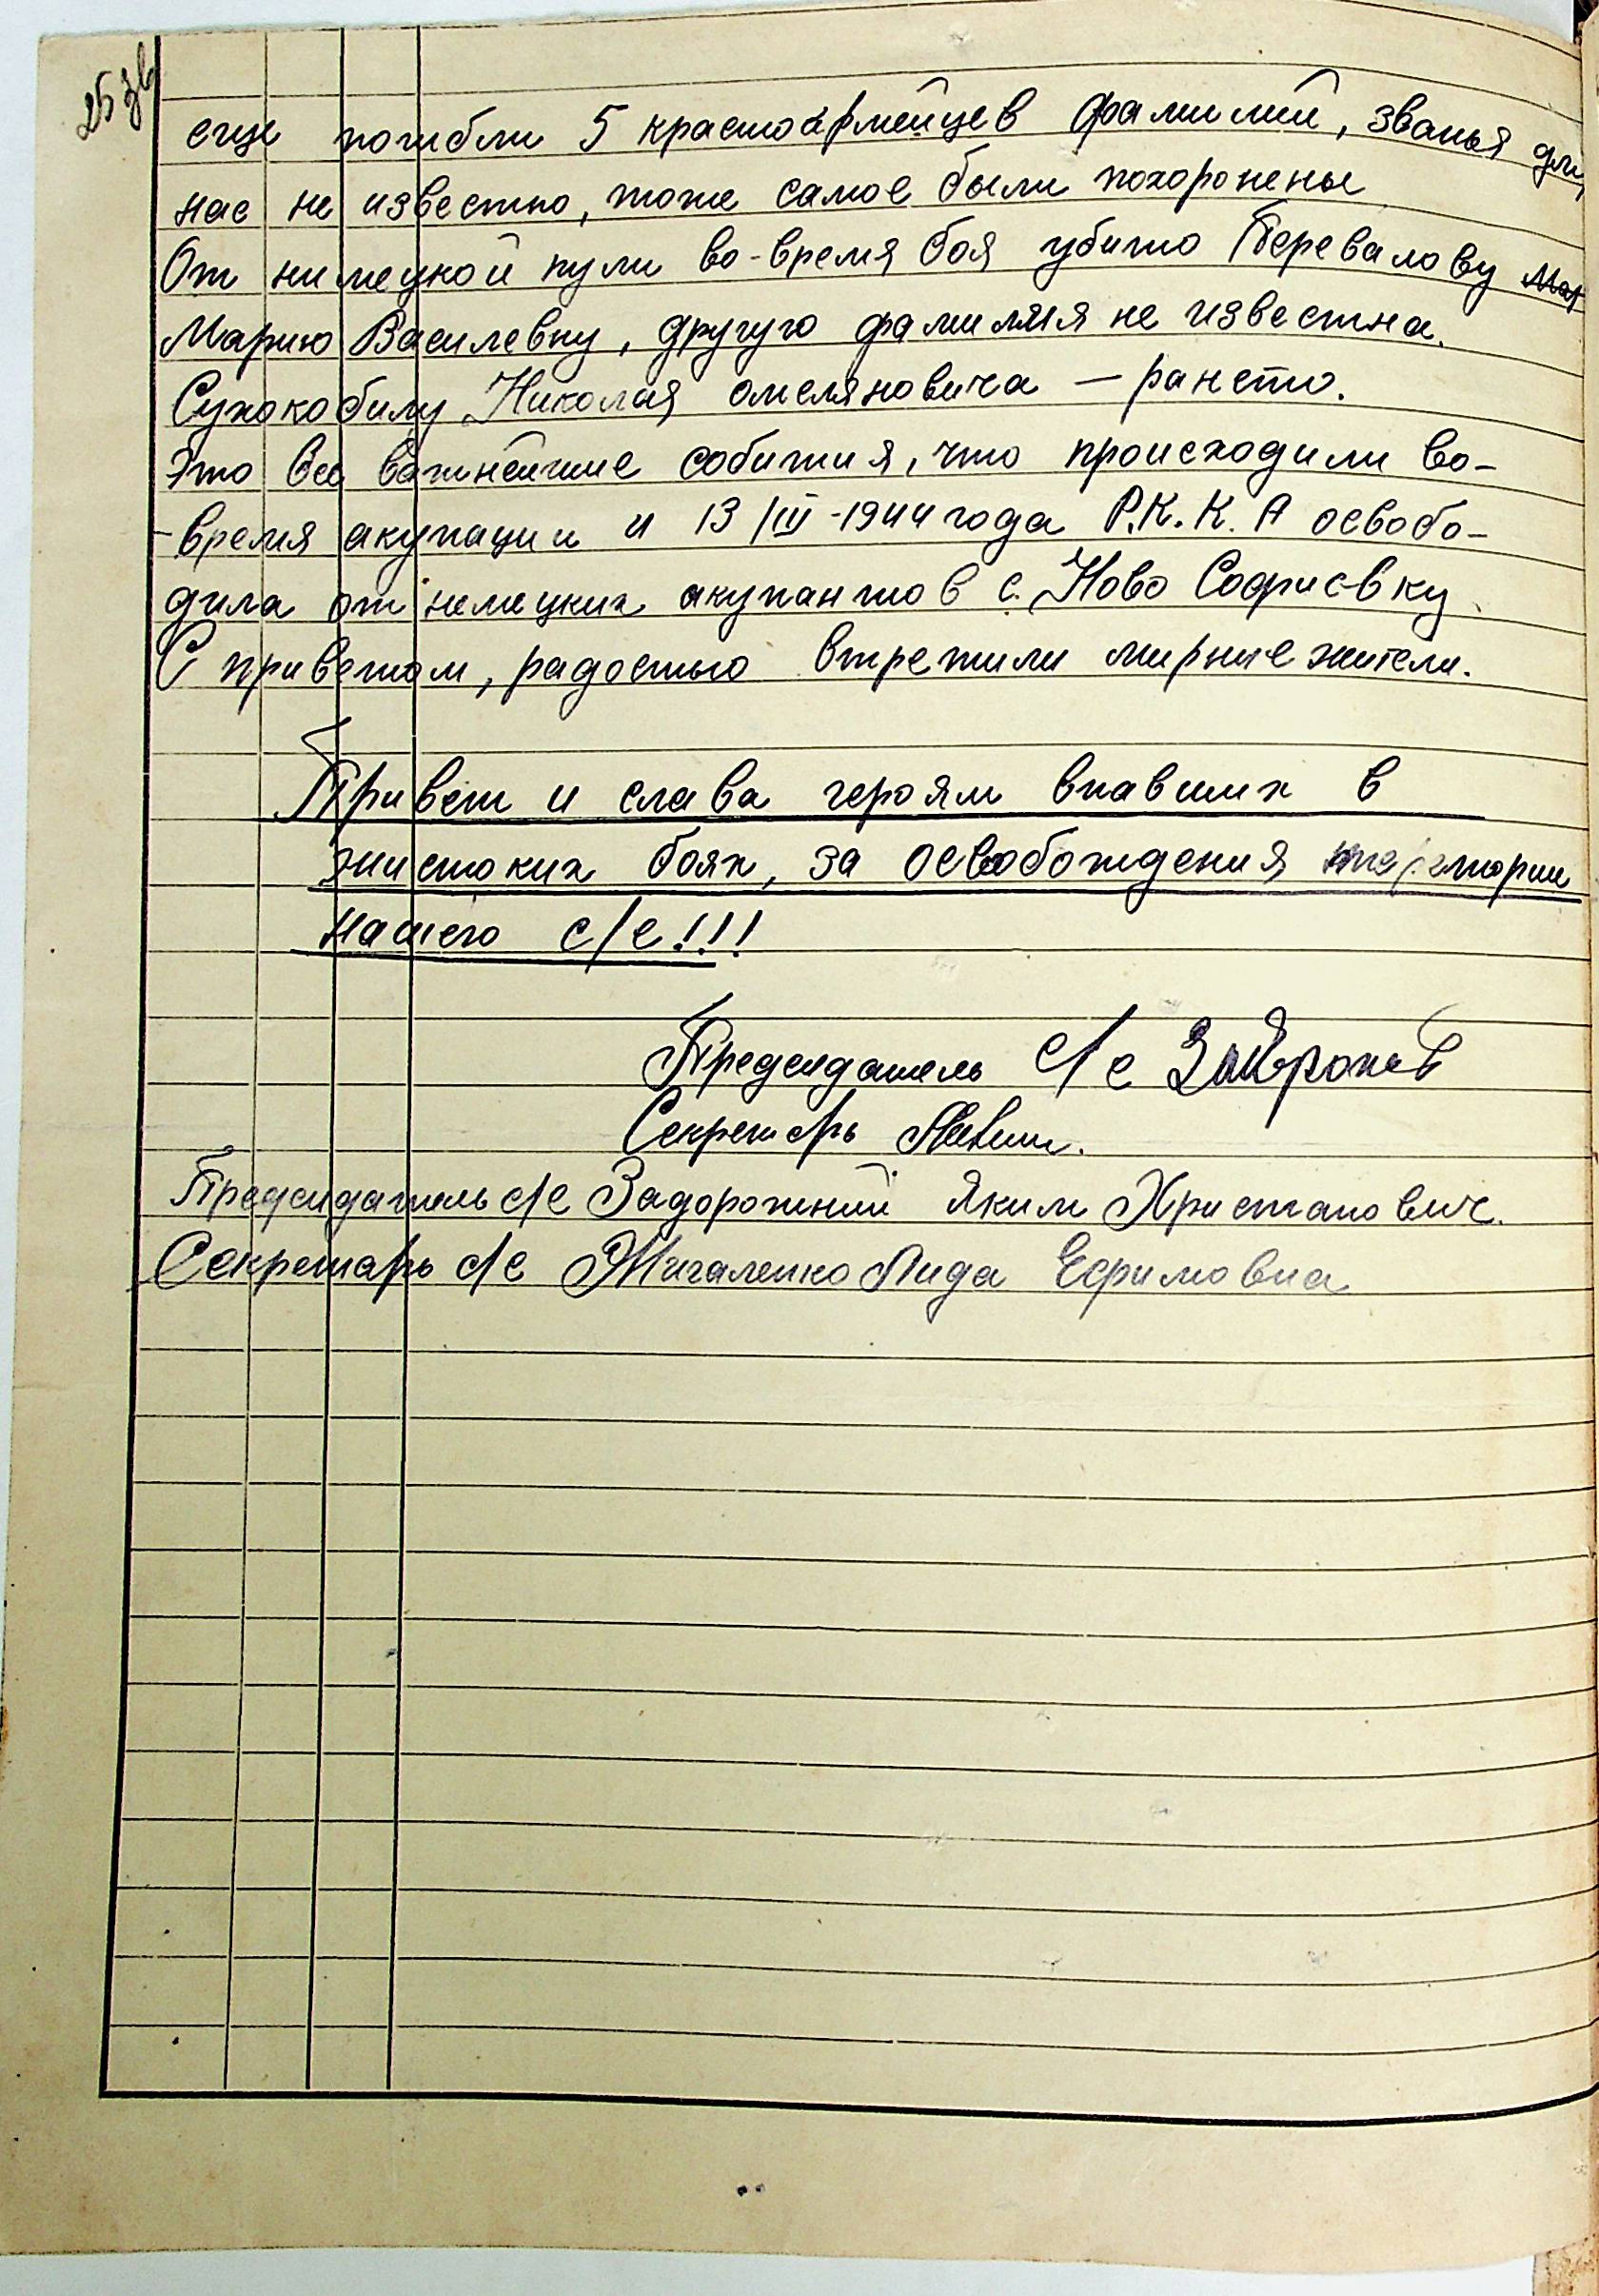 25 зв
еще погибли 5 красноармейцев фамилий, званья для
нас не известно, тоже самое были похоронены
От нимецкой пули во-время боя убито Перевалову
Марию Василевну, другую фамилия не известна.
Сухокобилу Николая омеляновича — рането.
Это все важнейшие собития, что происходили во-
-время акупации и 13/III-1944 года Р.К.К.А освобо-
дила от немецких акупантов с. Ново Софиевку
С приветом, радостью втретили мирние жители.
Привет и слава героям впавших в
жистоких боях, за освобождения территории
нашего с/с!!!
Председатель с/с
Секретарь
Председатель с/с Задорожний Яким Христанович.
Секретарь с/с Жигаленко Лида Ефимовна